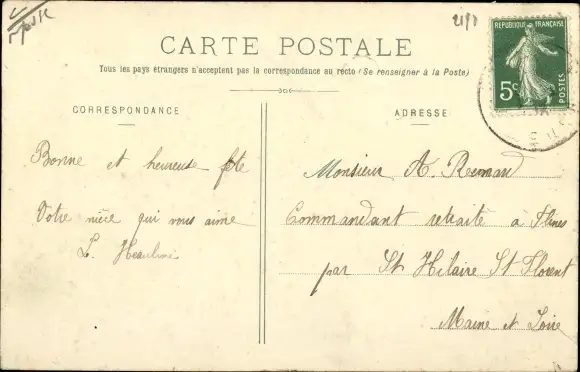 CARTE POSTALE
Tous les pays étrangers n'acceptent pas la correspondance au recto (Se renseigner à la Poste)
RÉPUBLIQUE FRANÇAISE
5c
POSTES
CORRESPONDANCE
Bonne et heureuse fête
Votre nièce qui vous aime
L.
ADRESSE
Monsieur A.
Commandant retraité à
par St Hilaire St Florent
Maine et Loire